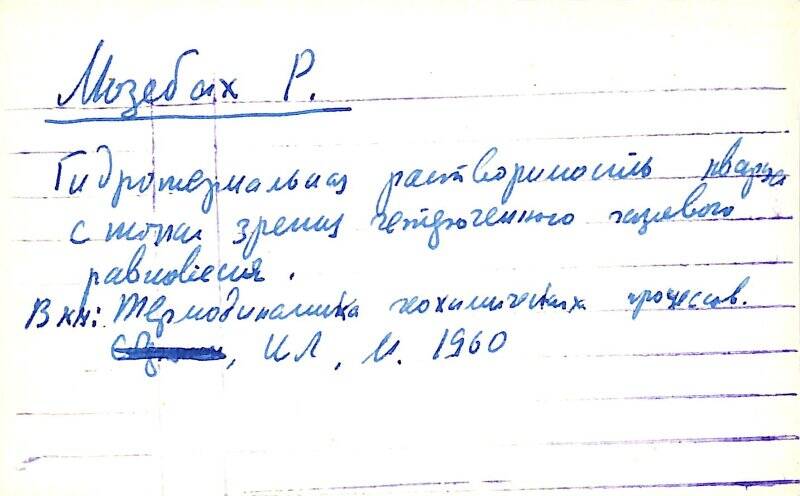 Мозебах Р.
Гидротермальная растворимость кварца
с точки зрения гетерогенного газового
равновесия.
В кн: Термодинамика геохимических процессов.
, ИЛ, М. 1960